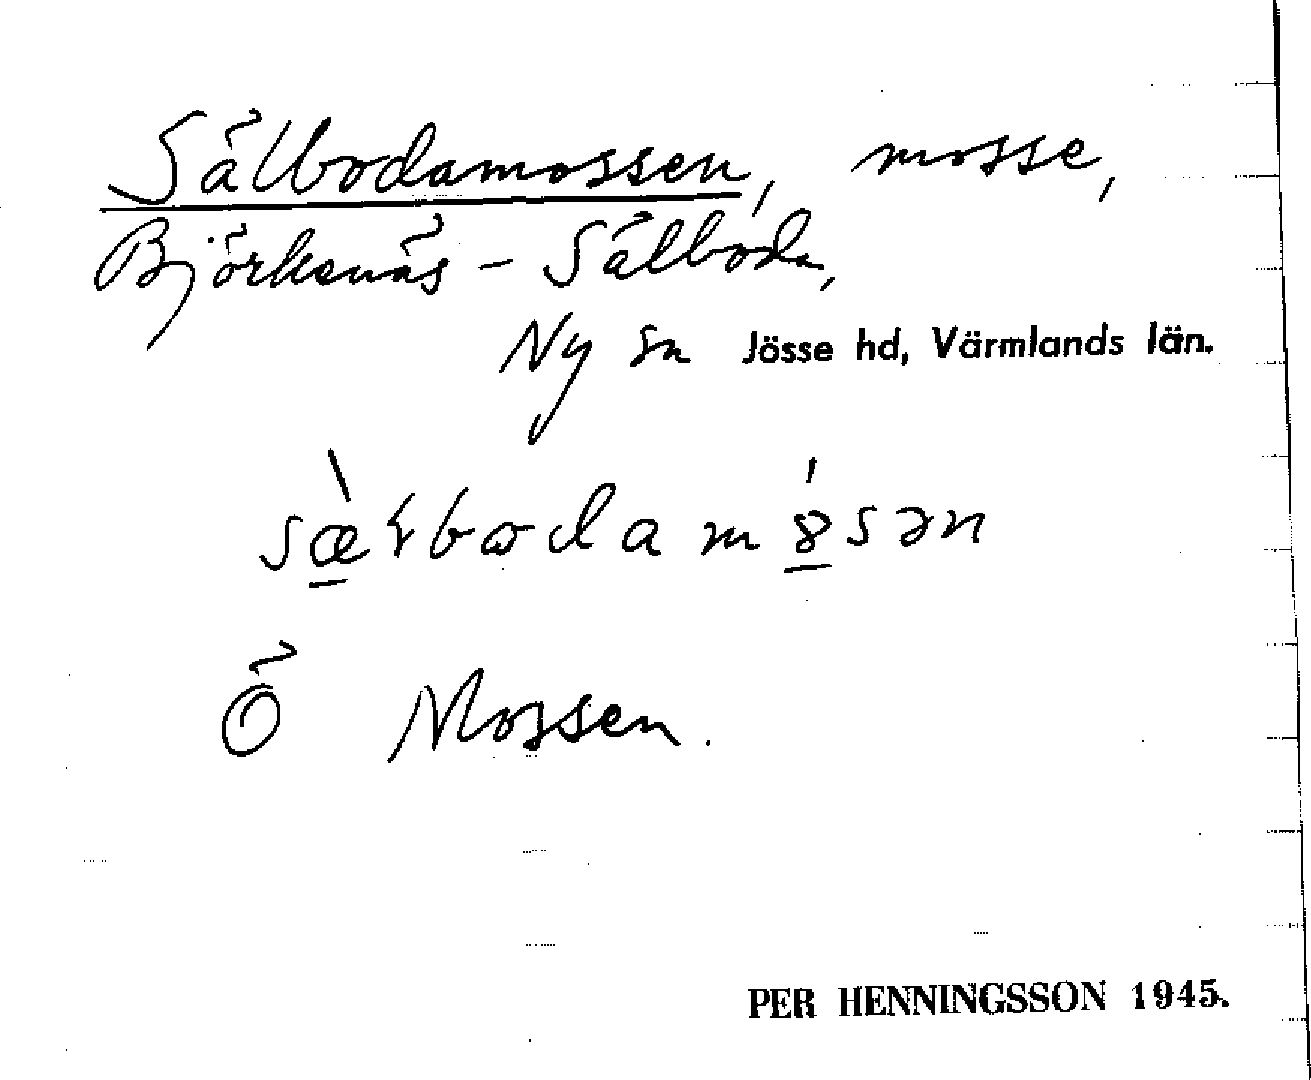 Sälbodamossen, mosse,
Björkenäs - Sälboda,
Ny sn Jösse hd, Värmlands län.
Ö Mossen.
PER HENNINGSSON 1945.